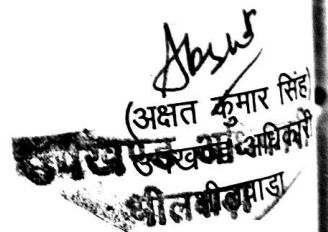 (अक्षत कुमार सिंह)
उपखण्ड अधिकारी
भीलवाड़ा